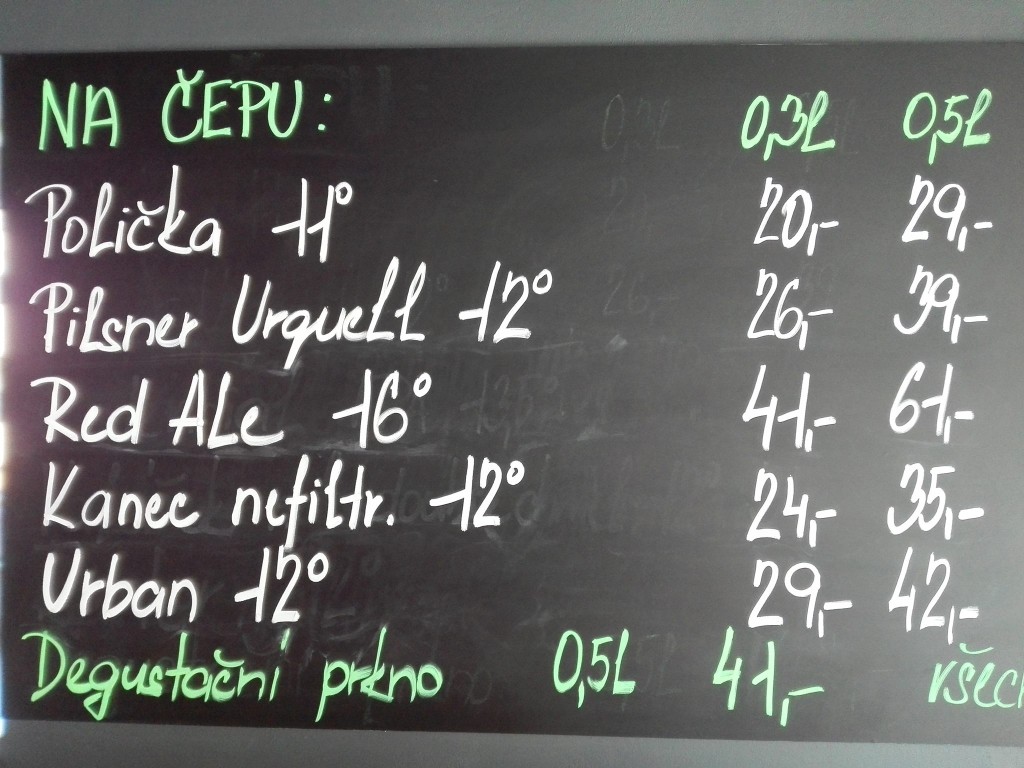 NA ČEPU: 0,3L 0,5L
Polička 11° 20,- 29,-
Pilsner Urquell 12° 26,- 39,-
Red Ale 16° 41,- 61,-
Kanec nefiltr. 12° 24,- 35,-
Urban 12° 29,- 42,-
Degustační prkno 0,5L 41,-